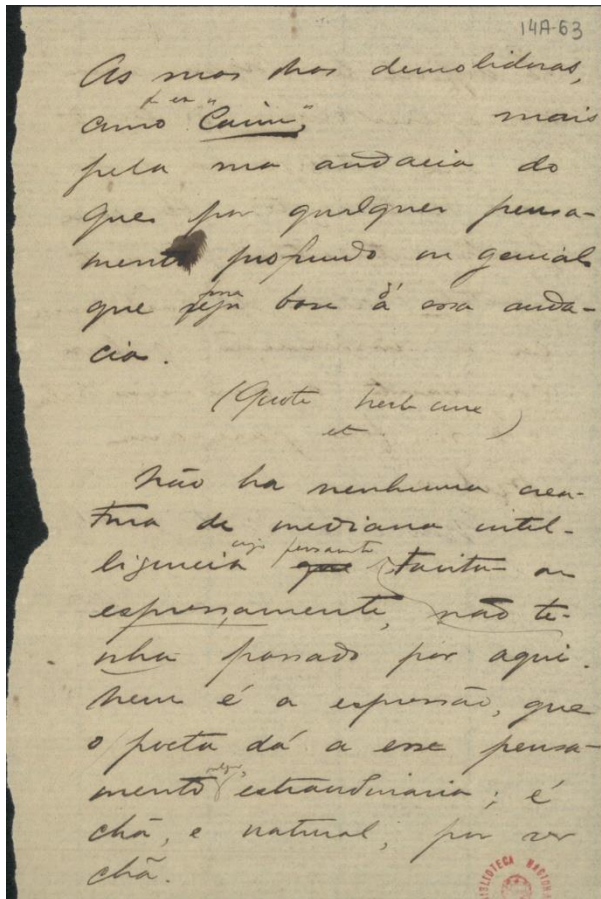 14A-63
As suas obras demolidoras,
como "Caim", mais
pela sua audacia do
que por qualquer pensa-
mento profundo ou genial
que seja base á essa auda-
cia.
(Quote
Não ha nenhuma crea-
tura de mediana intel-
ligencia cujo pensamento tacita ou
expressamente, não te-
nha passado por aqui.
Nem é a expressão, que
o poeta dá a esse pensa-
mento vulgar, extraordinaria; é
chã, e natural, por ser
chã.
BIBLIOTECA NACIONAL